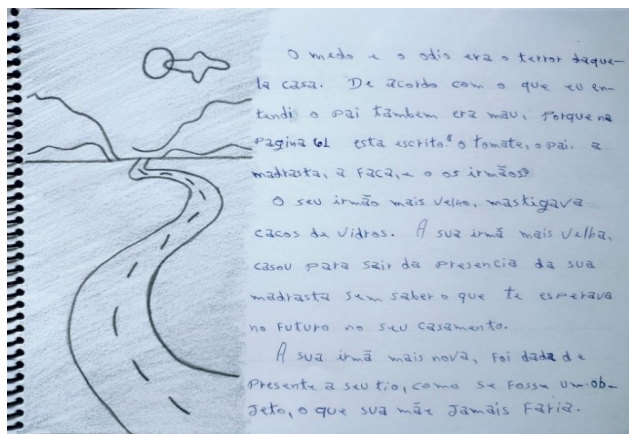 O medo e o odis era o terror daque-
la casa. De acordo com o que eu en-
tendi o pai também era mau, porque na
Pagina 61 esta escrito "o tomate, o pai. a
madrasta, a Faca, e o os irmãos"
O seu irmão mais velho, mastigava
cacos de vidros. A sua irmã mais velha,
casou para sair da presencia da sua
madrasta sem saber o que te esperava
no Futuro no seu casamento.
A sua irmã mais nova, Foi dada de
Presente a seu tio, como se Fosse um ob-
Jeto, o que sua mãe Jamais Faria.